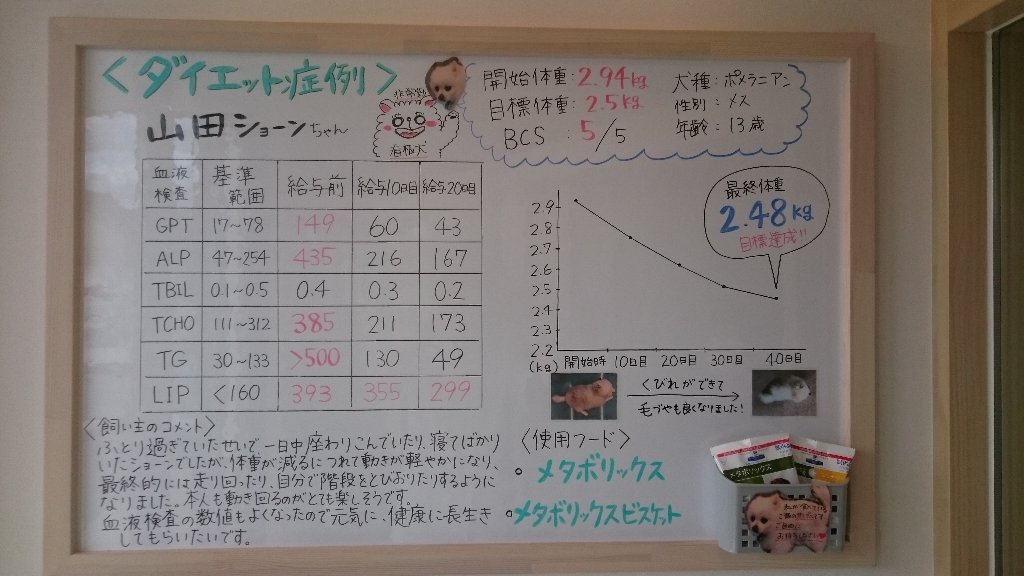 ＜ダイエット症例＞
山田ショーンちゃん
看板犬
開始体重：2.94kg
目標体重：2.5kg
BCS：5/5
犬種：ポメラニアン
性別：メス
年齢：13歳
血液検査 基準範囲 給与前 給与10日目 給与20日目
GPT 17～78 149 60 43
ALP 47～254 435 216 167
TBIL 0.1～0.5 0.4 0.3 0.2
TCHO 111～312 385 211 173
TG 30～133 >500 130 49
LIP <160 393 355 299
最終体重
2.48kg
目標達成!!
2.9
2.8
2.7
2.6
2.5
2.4
2.3
2.2
(kg)
開始時 10日目 20日目 30日目 40日目
くびれができて
毛づやも良くなりました!
〈飼い主のコメント〉
ふとり過ぎていたせいで一日中座わりこんでいたり、寝てばかり
いたショーンでしたが、体重が減るにつれて動きが軽やかになり、
最終的には走り回ったり、自分で階段をとびおりたりするように
なりました。本人も動き回るのがとても楽しそうです。
血液検査の数値もよくなったので元気に、健康に長生き
してもらいたいです。
〈使用フード〉
・メタボリックス
・メタボリックスビスケット
メタボリックス